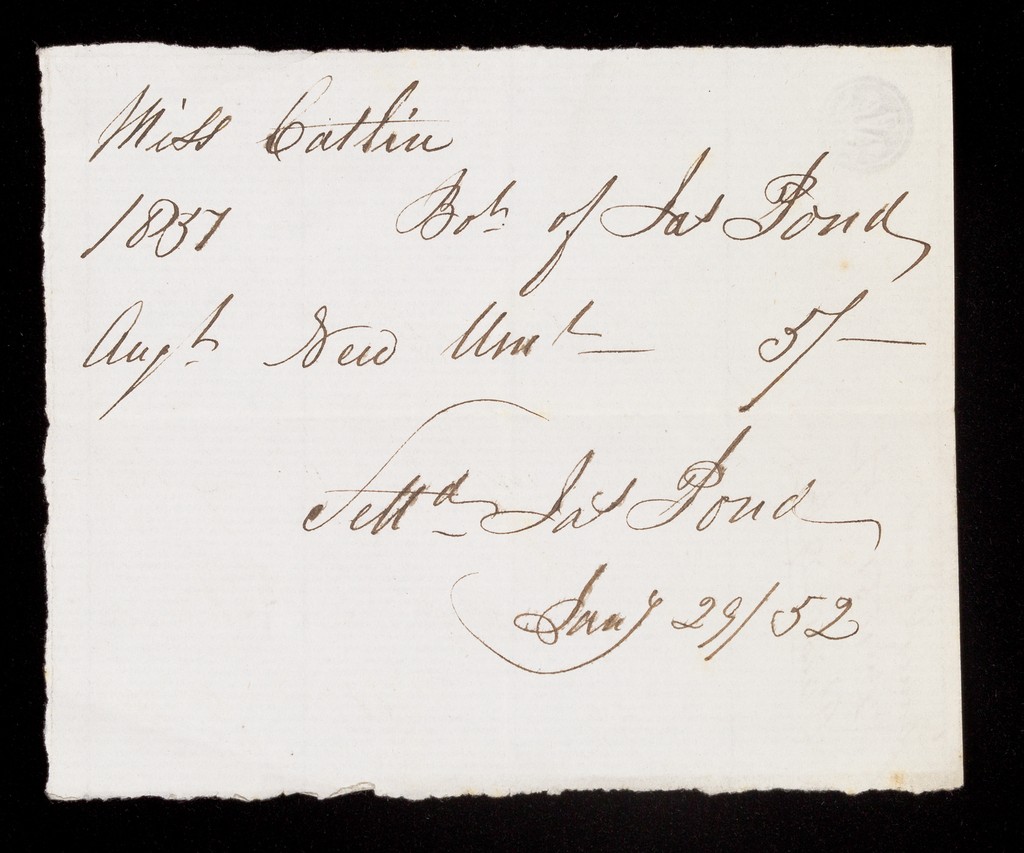 Miss Catlin
1851 Bot of Jas Pond
Augt New Umt — 5/—
Settd Jas Pond
Jany 29/52